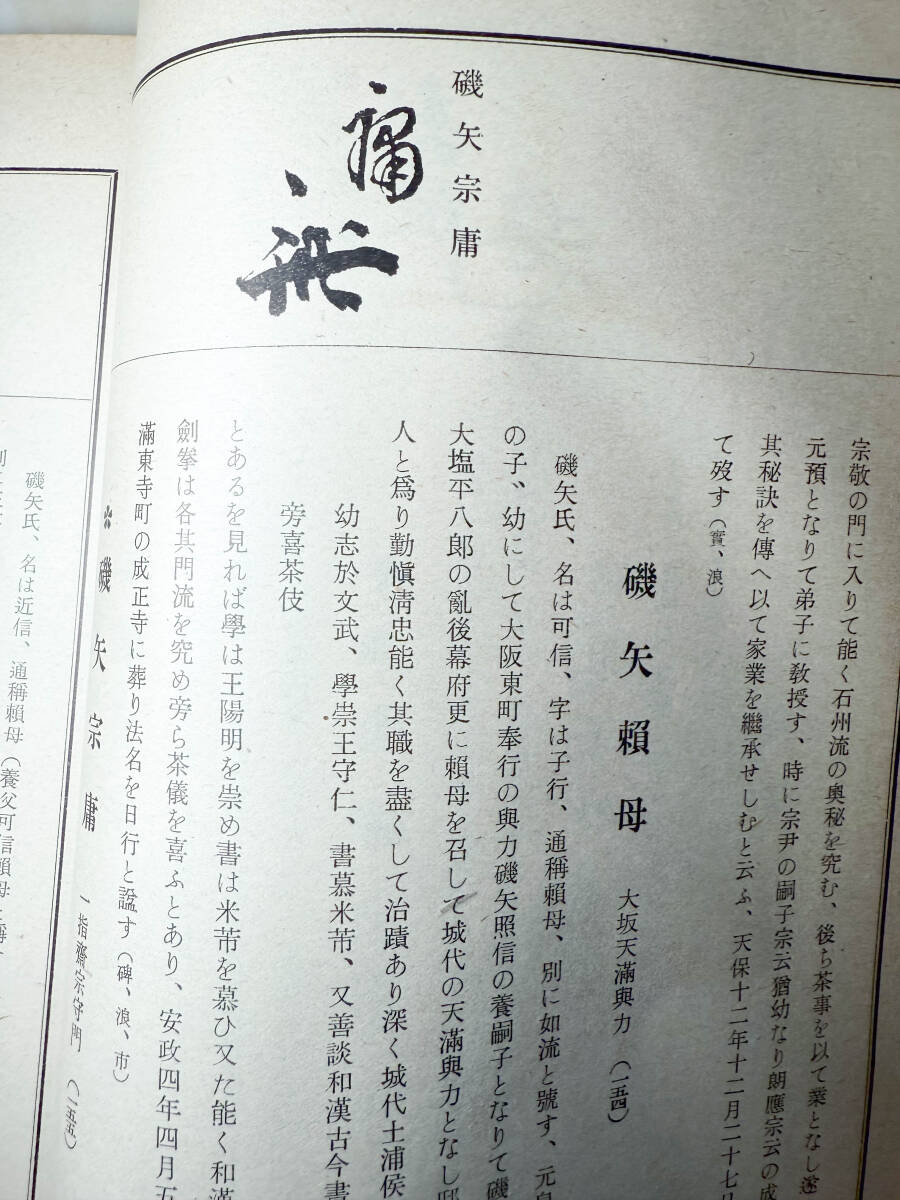 磯矢宗庸
宗敬の門に入りて能く石州流の奥秘を究む、後ち茶事を以て業となし遂
元預となりて弟子に教授す、時に宗尹の嗣子宗云猶幼なり朗應宗云の成
其秘訣を傳へ以て家業を繼承せしむと云ふ、天保十二年十二月二十七
て歿す(寶、浪)
磯矢賴母 大坂天滿與力 (一五四)
磯矢氏、名は可信、字は子行、通稱賴母、別に如流と號す、元
の子〝幼にして大阪東町奉行の與力磯矢照信の養嗣子となりて磯
大塩平八郎の亂後幕府更に賴母を召して城代の天滿與力となし
人と爲り勤愼淸忠能く其職を盡くして治蹟あり深く城代土浦侯
幼志於文武、學崇王守仁、書慕米芾、又善談和漢古今書
旁喜茶伎
とあるを見れば學は王陽明を崇め書は米芾を慕ひ又た能く和漢
劍拳は各其門流を究め旁ら茶儀を喜ふとあり、安政四年四月五
滿東寺町の成正寺に葬り法名を日行と諡す(碑、浪、市)
*磯矢宗庸 一指齋宗守門 (一五五)
磯矢氏、名は近信、通稱賴母(養父可信賴母と